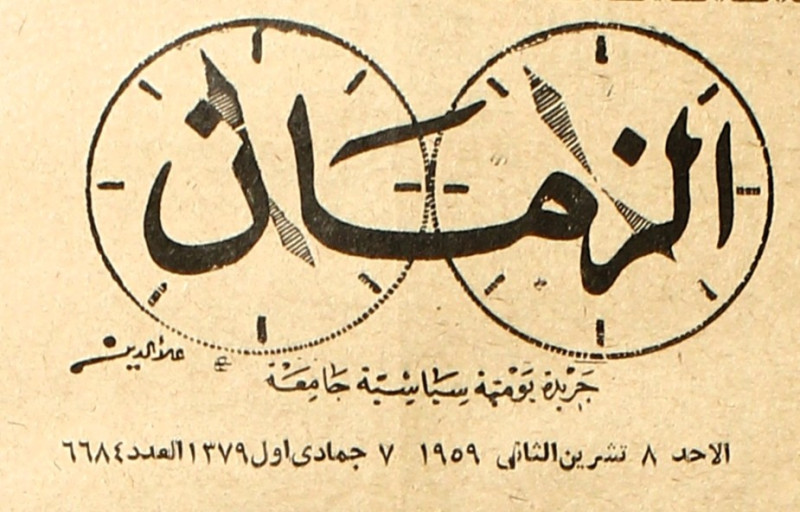 الزمان
علاء الدين
جريدة يومية سياسية جامعة
الاحد ٨ تشرين الثاني ١٩٥٩ ٧ جمادى اول ١٣٧٩ العدد ٦٦٨٤